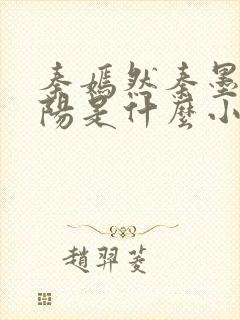 秦嫣然秦墨
陽是什麼小
趙羿菱